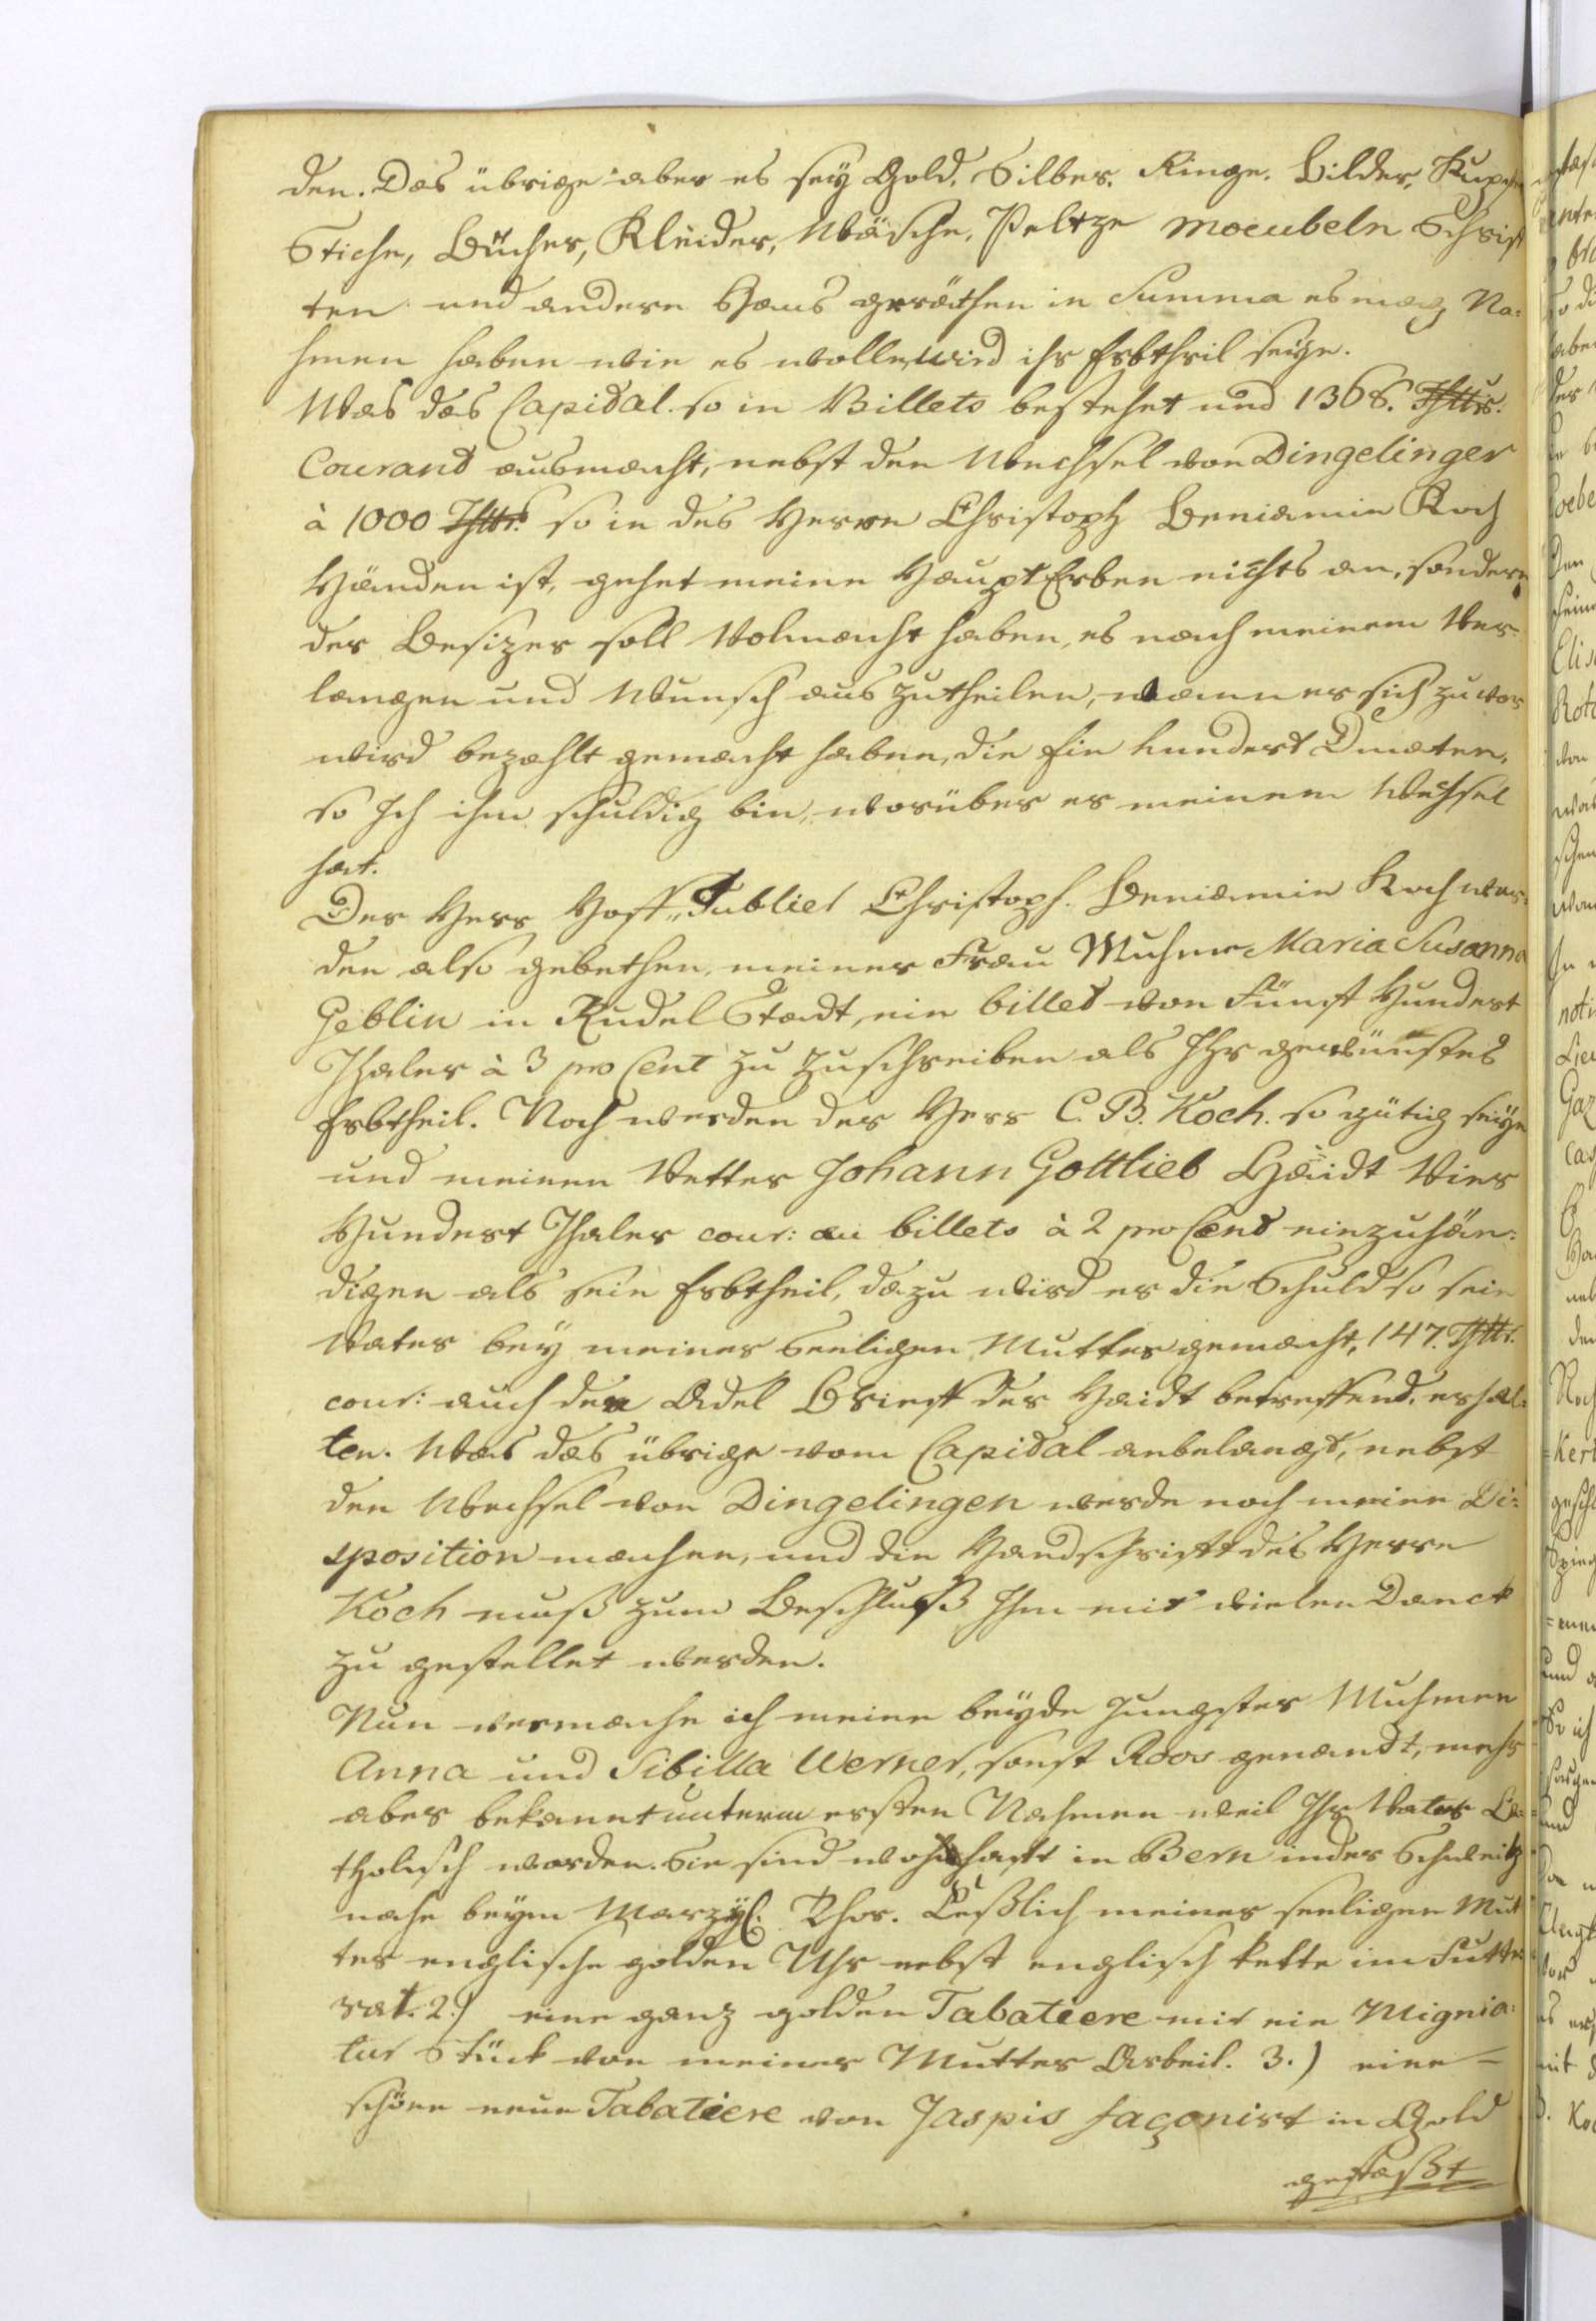 den. Das übrige aber es sey Gold, Silber, Ringe, Bilder, Kupfer
Stiche, Bücher, Kleider, Wäsche, Peltze moeubeln Schrif
ten und andere Haus geräthen in Summa es mag Na=
hmen haben wie es wolle, wird ihr Erbtheil seyn.
Was das Capidal so in Billets bestehet und 1368. Thlr.
Courand ausmacht, nebst den Wechsel von Dingelinger
à 1000 Thlr. so in des Herrn Christoph Beniamin Koch
Händen ist, gehet meine Haupt Erben nichts an, sondern
der Besizer soll Volmacht haben, es nach meinem Ver
langen und Wunsch aus zutheilen, wann er sich zuvor
wird bezahlt gemacht haben, die Ein hundert Ducaten,
so Ich ihm schuldig bin, worüber er meinem Wechsel
hat.
Der Herr Hoff-Jublier Christoph. Beniamin Koch wer=
den also gebethen, meiner Frau Muhme Maria Susanna
Geblin in Rudel Stadt, ein billed von Fünff Hundert
Thaler à 3 pro Cent zu zuschreiben als Ihr gewünschtes
Erbtheil. Noch werden der Herr C. B. Koch. so gütig seyn
und meinen Vetter Johann Gottlieb Haidt Vier
Hundert Thaler cour: an billets à 2 pro Cend einzuhän=
digen als sein Erbtheil, dazu wird er die Schuld so sein
Vater bey meiner Seeligen Mutter gemacht, 147. Thlr.
cour: auch den Adel Brieff der Haidt betreffend, erhal=
ten. Was das übrige vom Capidal anbelangd, nebst
den Wechsel von Dingelingen werde noch meine Di=
sposition machen, und die Handschrifft des Herrn
Koch muß zum Beschluß Ihm mit vielen Danck
zu gestellet werden.
Nun vermache ich meine beyde Jungster Muhmen
Anna und Sibilla Werner, sonst Roos genandt, mehr
aber bekannt unterm ersten Nahmen weil Ihr Vater Ca=
tholisch worden. Sie sind wohnhafft in Bern in der Schweitz
nahe beym Thor. meiner seeligen Mut
ter englische golden Uhr nebst englisch kette im Futte
rat. 2.) eine ganz golden Tabatiere mit ein Mignia=
tur Stück von meiner Mutter Arbeit. 3.) eine
schöne neue Tabatiere von Jaspis façonirt in Gold
gefaßt